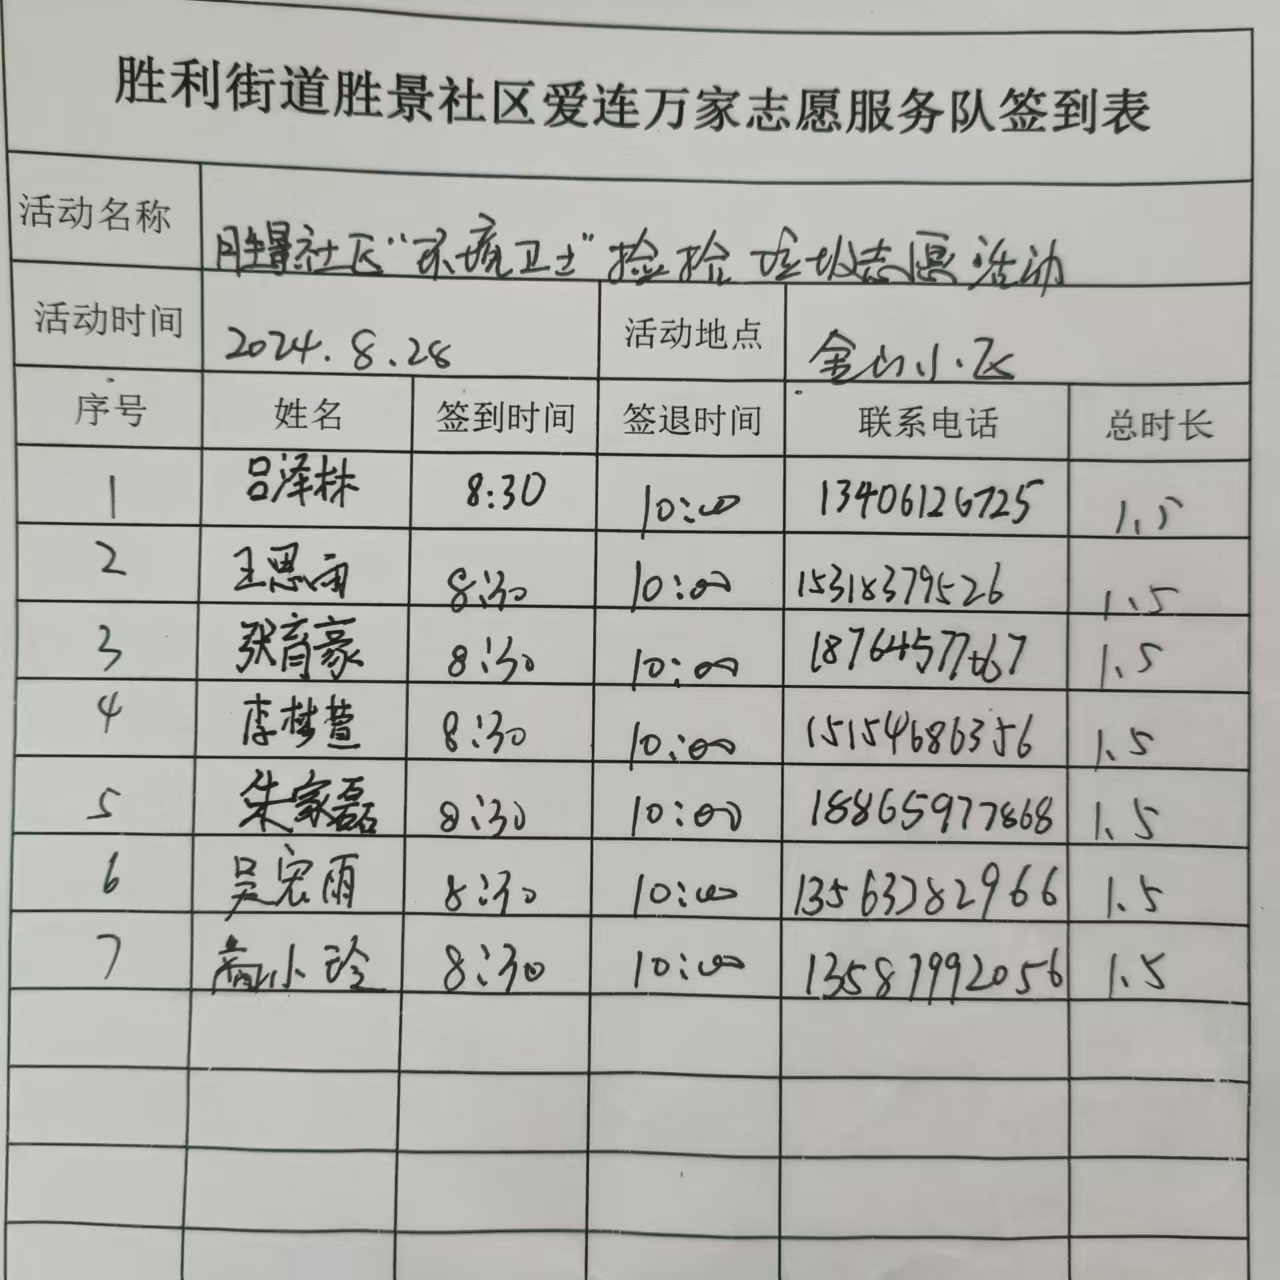 胜利街道胜景社区爱连万家志愿服务队签到表
活动名称 胜景社区“环境卫士”捡捡垃圾志愿活动
活动时间 2024.8.28 活动地点 金山小区
序号 姓名 签到时间 签退时间 联系电话 总时长
1 吕泽林 8:30 10:00 13406126725 1.5
2 王思雨 8:30 10:00 15318379526 1.5
3 张育豪 8:30 10:00 1.5
4 李梦萱 8:30 10:00 15154686356 1.5
5 朱家磊 8:30 10:00 18865977868 1.5
6 吴宏雨 8:30 10:00 13563782966 1.5
7 小玲 8:30 10:00 13587992056 1.5